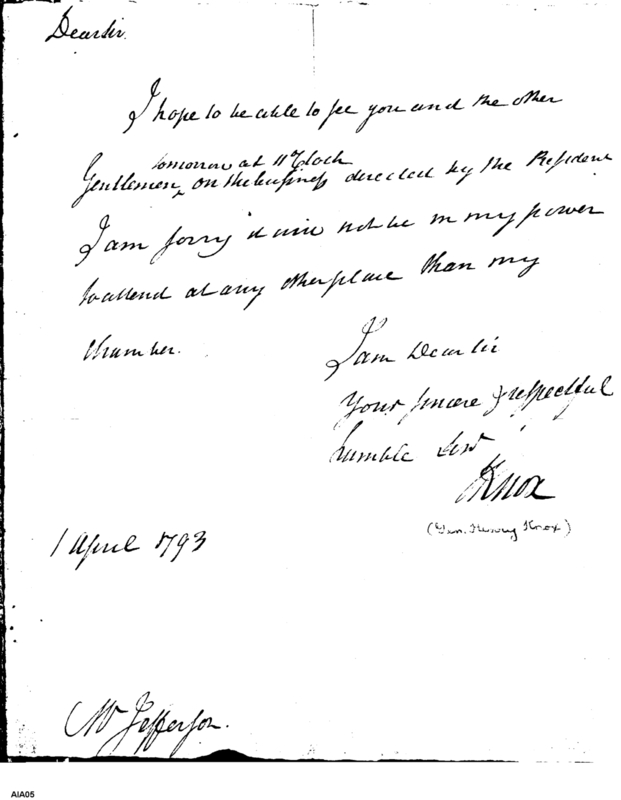 Dear sir.
I hope to be able to see you and the other
tomorrow at 11 oClock
Gentlemen, ‸ on the business directed by the President
I am sorry it will not be in my power
to attend at any other place than my
chamber.
I am Dear sir
Your sincere & respectful
humble serv
HKnox
(Gen. Henry Knox)
1 April 1793
Mr Jefferson.
AIA05